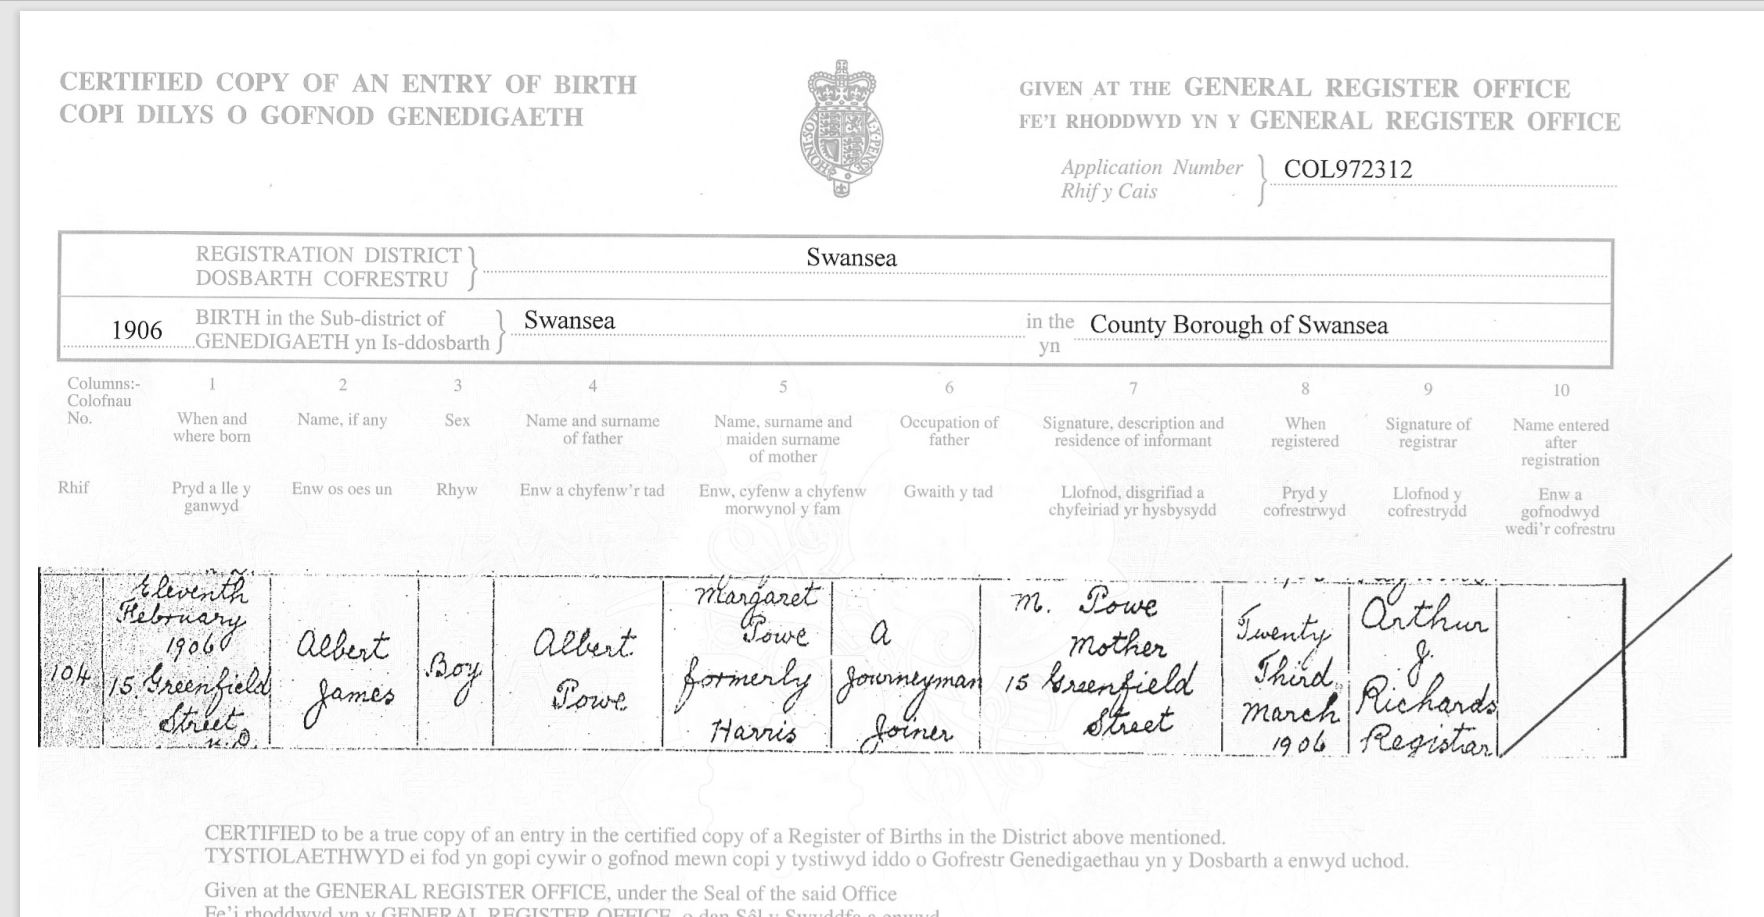 CERTIFIED COPY OF AN ENTRY OF BIRTH
COPI DILYS O GOFNOD GENEDIGAETH
GIVEN AT THE GENERAL REGISTER OFFICE
FE'I RHODDWYD YN Y GENERAL REGISTER OFFICE
Application Number
Rhif y Cais
COL972312
REGISTRATION DISTRICT
DOSBARTH COFRESTRU
Swansea
1906
BIRTH in the Sub-district of
GENEDIGAETH yn Is-ddosbarth
Swansea
in the
yn
County Borough of Swansea
Columns:-
Colofnau
No.
Rhif
1
When and
where born
Pryd a lle y
ganwyd
2
Name, if any
Enw os oes un
3
Sex
Rhyw
4
Name and surname
of father
Enw a chyfenw'r tad
5
Name, surname and
maiden surname
of mother
Enw, cyfenw a chyfenw
morwynol y fam
6
Occupation of
father
Gwaith y tad
7
Signature, description and
residence of informant
Llofnod, disgrifiad a
chyfeiriad yr hysbysydd
8
When
registered
Pryd y
cofrestrwyd
9
Signature of
registrar
Llofnod y
cofrestrydd
10
Name entered
after
registration
Enw a
gofnodwyd
wedi'r cofrestru
104
Eleventh
February
1906
15 Greenfield
Street
Albert
James
Boy
Albert
Powe
Margaret
Powe
formerly
Harris
a
Journeyman
Joiner
M. Powe
Mother
15 Greenfield
Street
Twenty
Third
March
1906
Arthur
J.
Richards
Registrar
CERTIFIED to be a true copy of an entry in the certified copy of a Register of Births in the District above mentioned.
TYSTIOLAETHWYD ei fod yn gopi cywir o gofnod mewn copi y tystiwyd iddo o Gofrestr Genedigaethau yn y Dosbarth a enwyd uchod.
Given at the GENERAL REGISTER OFFICE, under the Seal of the said Office
Fe'i rhoddwyd yn y GENERAL REGISTER OFFICE, o dan Sêl y Swyddfa a enwyd